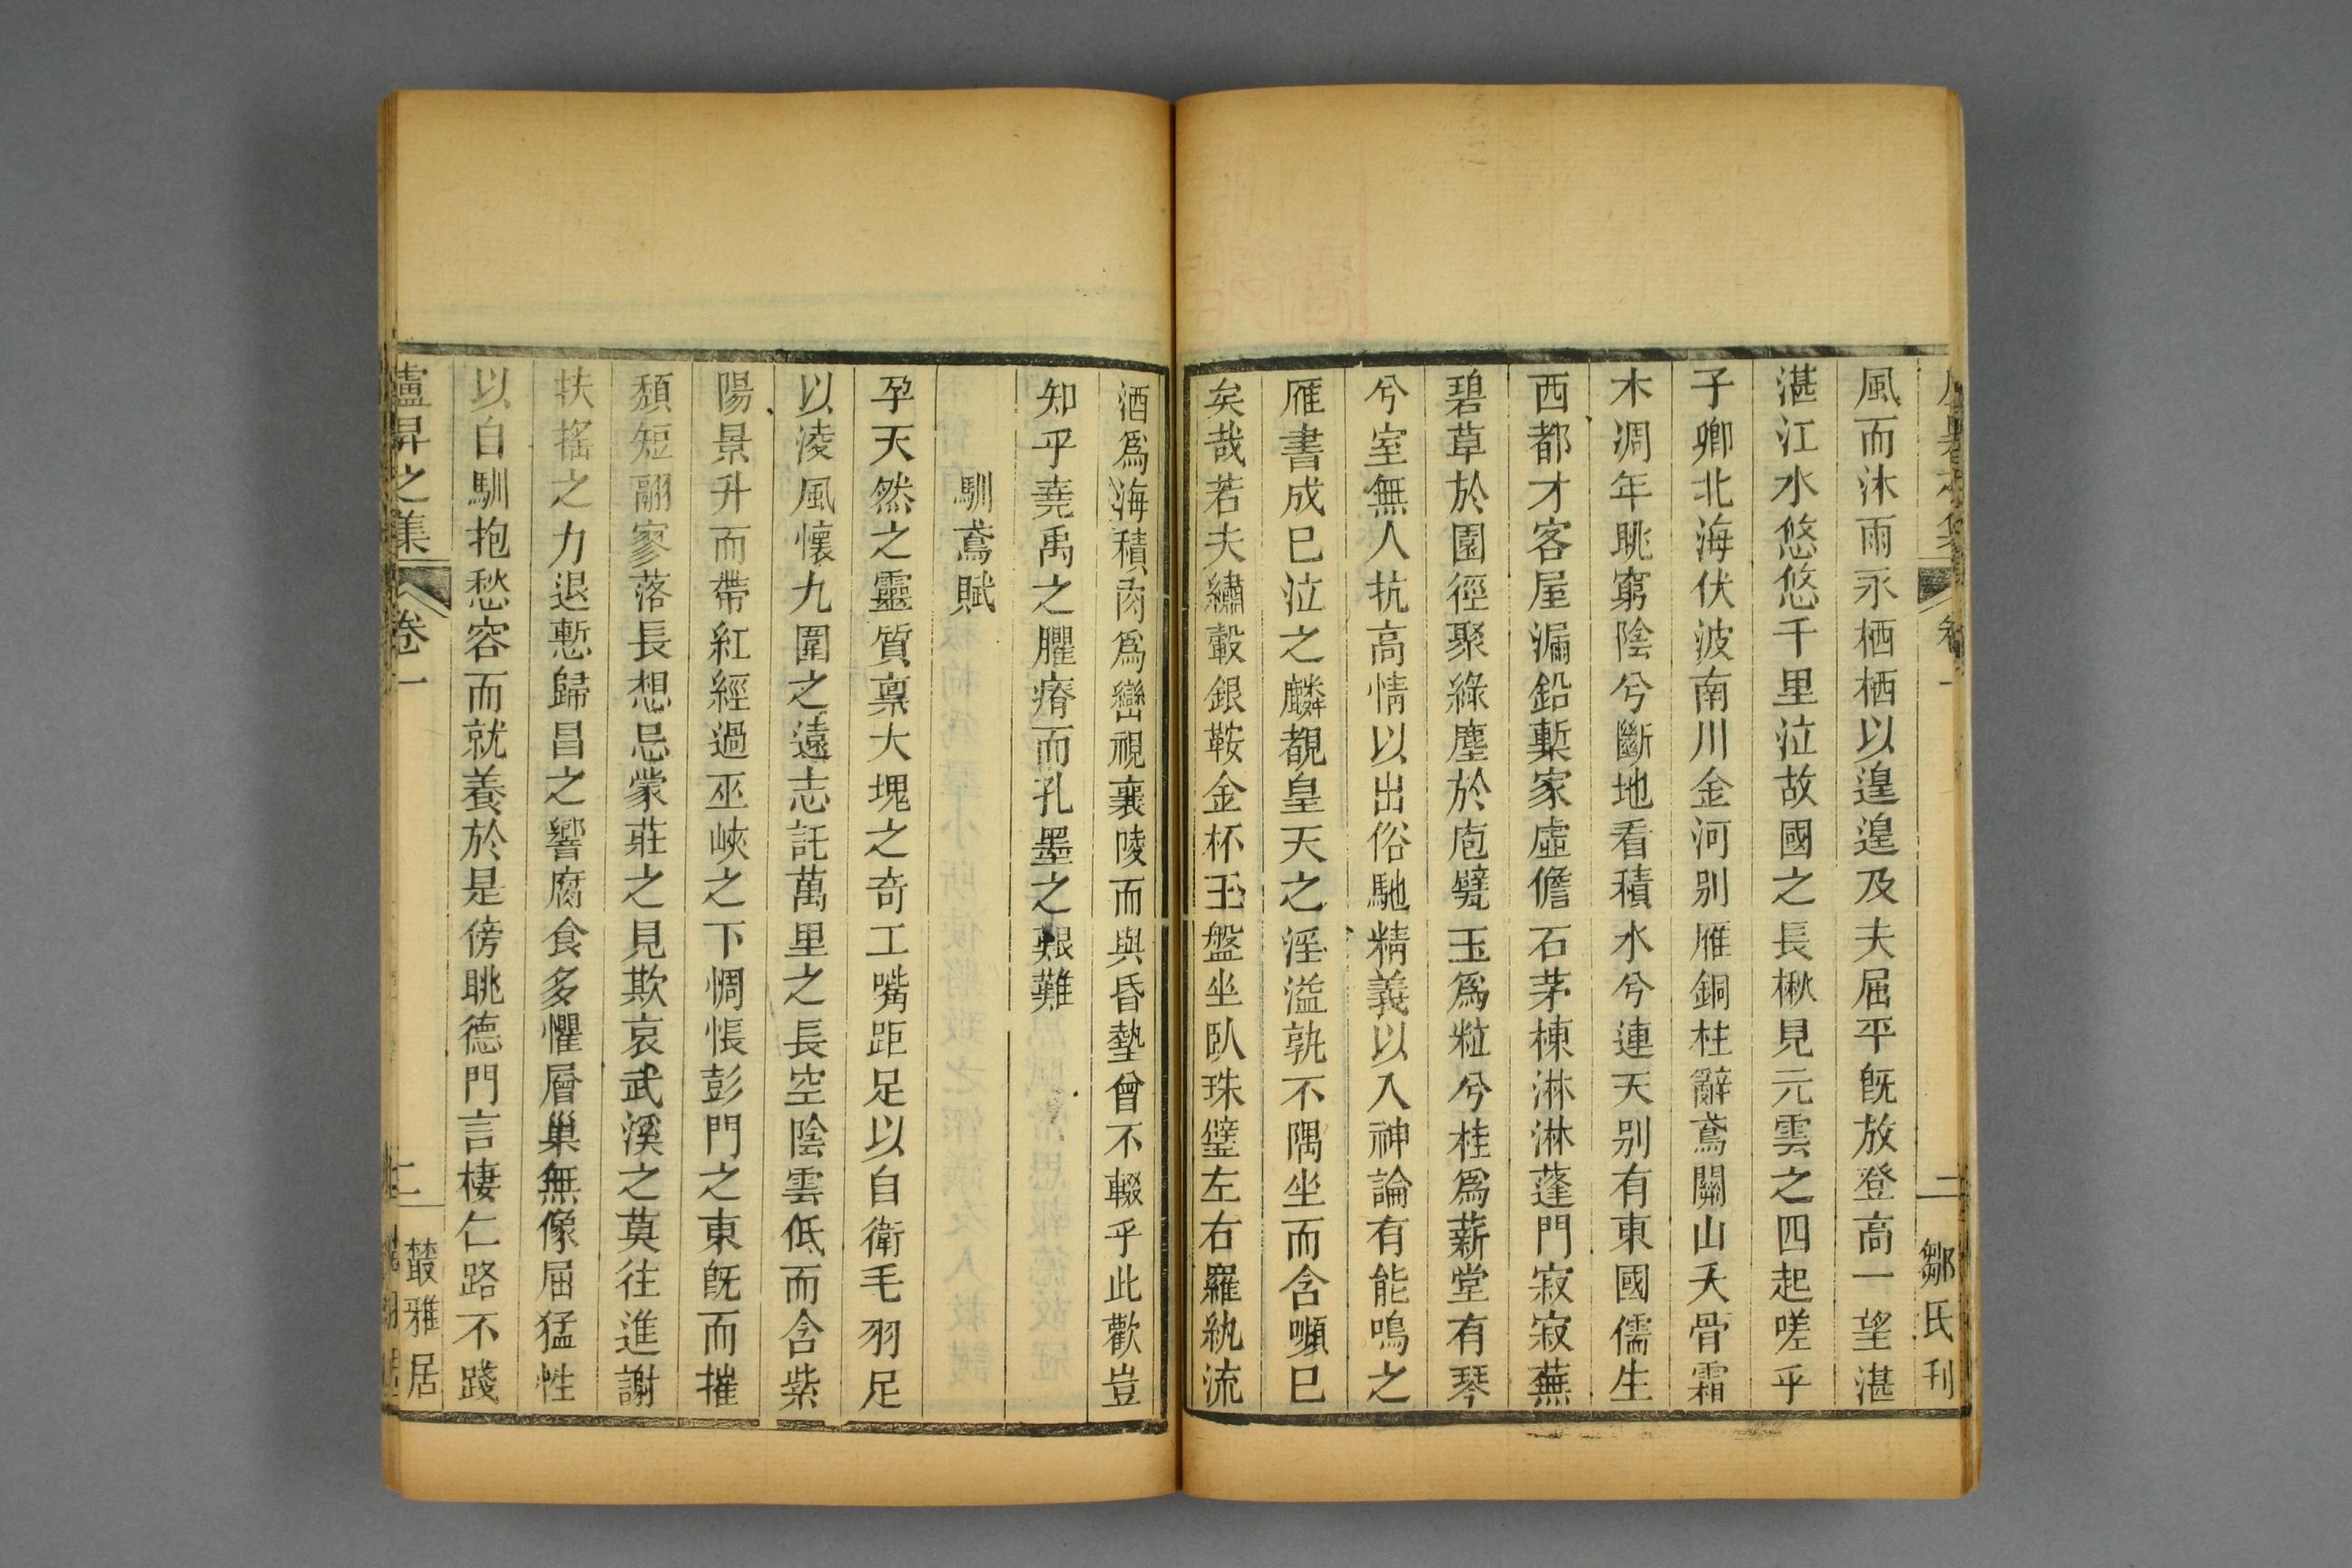 風而沐雨永栖栖以遑遑及夫屈平旣放登高一望湛
湛江水悠悠千里泣故國之長楸見元雲之四起嗟乎
子卿北海伏波南川金河别雁銅柱辭鳶關山夭骨霜
木凋年眺窮陰兮斷地看積水兮連天别有東國儒生
西都才客屋漏鉛槧家虛儋石茅棟淋淋蓬門寂寂蕪
碧草於園徑聚綠塵於庖甓玉爲粒兮桂爲薪堂有琴
兮室無人抗高情以出俗馳精義以入神論有能鳴之
雁書成已泣之麟覩皇天之淫溢孰不隅坐而含嚬已
矣哉若夫繡轂銀鞍金杯玉盤坐臥珠璧左右羅紈流
二 鄒氏刊
酒爲海積肉爲巒視襄陵而與昏墊曾不輟乎此歡豈
知乎堯禹之臞瘠而孔墨之艱難
馴鳶賦
孕天然之靈質稟大塊之奇工嘴距足以自衛毛羽足
以凌風懷九圍之遠志託萬里之長空陰雲低而含紫
陽景升而帶紅經過巫峽之下惆悵彭門之東旣而摧
頽短翮寥落長想忌蒙莊之見欺哀武溪之莫往進謝
扶搖之力退慙歸昌之響腐食多懼層巢無像屈猛性
以自馴抱愁容而就養於是傍眺德門言棲仁路不踐
盧昇之集 卷一 二 叢雅居